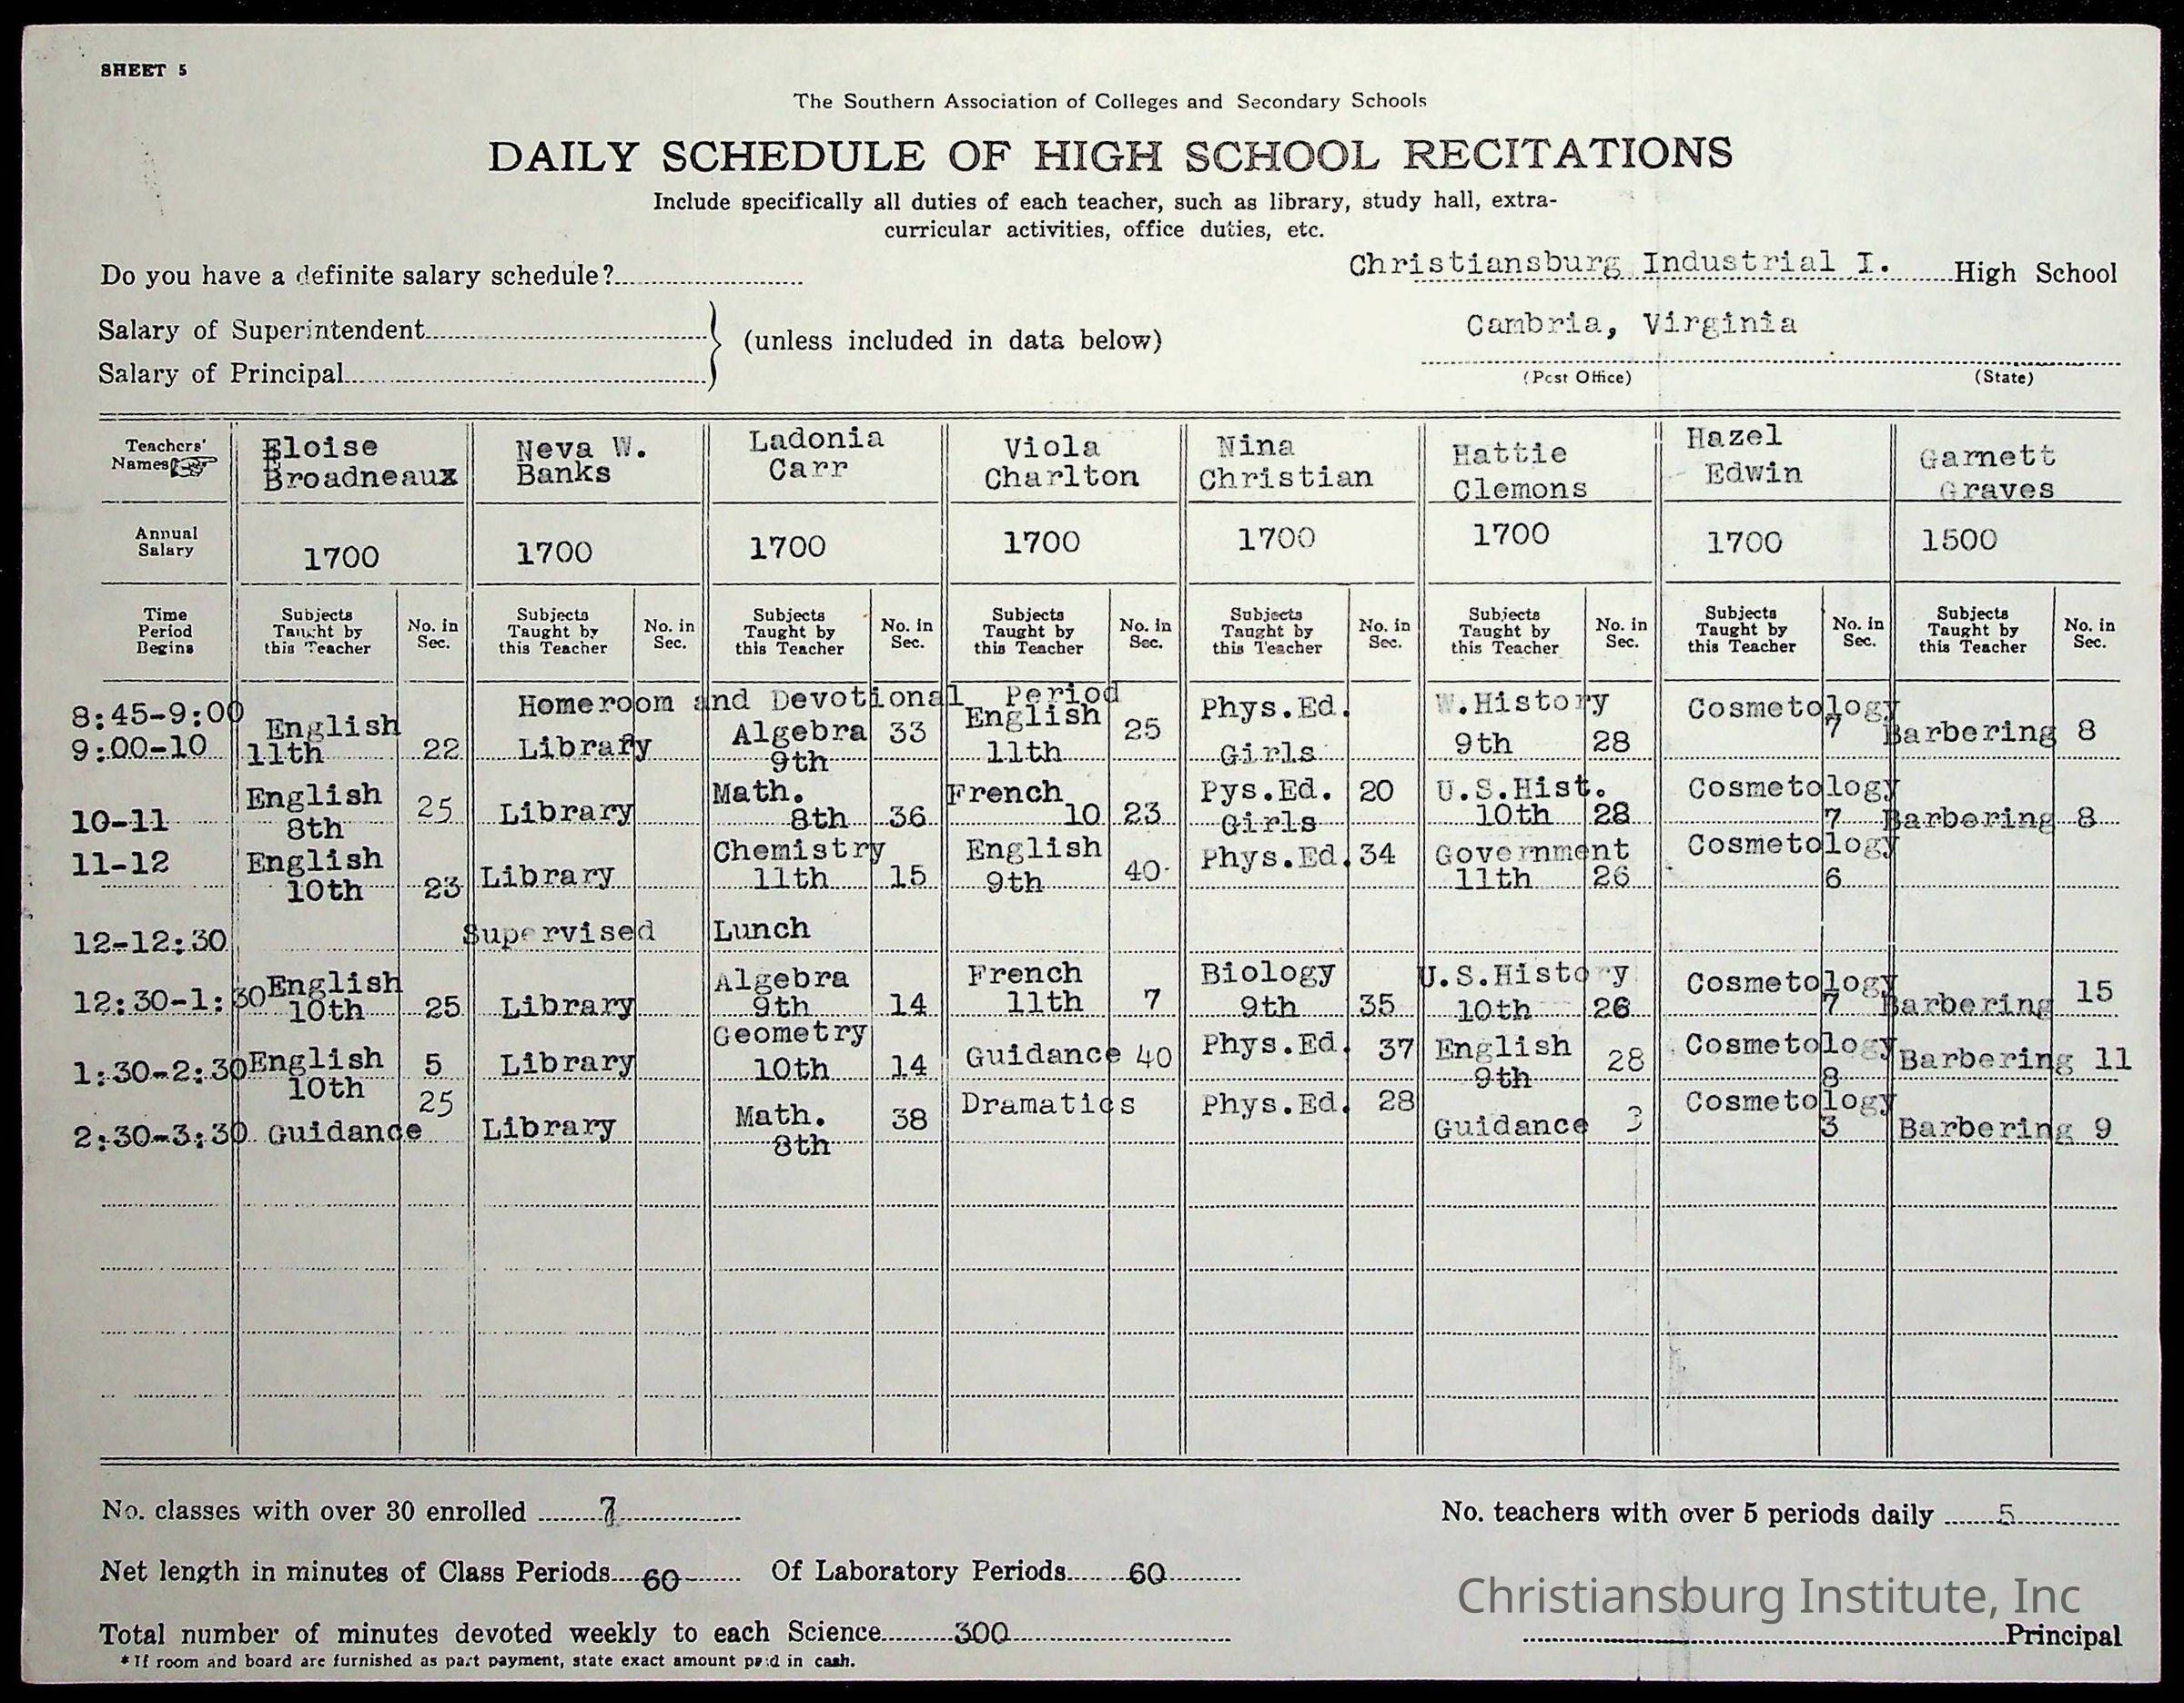 SHEET 5
The Southern Association of Colleges and Secondary Schools
DAILY SCHEDULE OF HIGH SCHOOL RECITATIONS
Include specifically all duties of each teacher, such as library, study hall, extra-
curricular activities, office duties, etc.
Do you have a definite salary schedule?
Christiansburg Industrial I. High School
Salary of Superintendent
(unless included in data below)
Cambria, Virginia
Salary of Principal
(Post Office) (State)
Teachers' Names Eloise Broadneaux Neva W. Banks Ladonia Carr Viola Charlton Nina Christian Hattie Clemons Hazel Edwin Garnett Graves
Annual Salary 1700 1700 1700 1700 1700 1700 1700 1500
Time Period Begins Subjects Taught by this Teacher No. in Sec. Subjects Taught by this Teacher No. in Sec. Subjects Taught by this Teacher No. in Sec. Subjects Taught by this Teacher No. in Sec. Subjects Taught by this Teacher No. in Sec. Subjects Taught by this Teacher No. in Sec. Subjects Taught by this Teacher No. in Sec. Subjects Taught by this Teacher No. in Sec.
8:45-9:00 Homeroom and Devotional Period
9:00-10 English 11th 22 Library Algebra 9th 33 English 11th 25 Phys.Ed. Girls W.History 9th 28 Cosmetology 7 Barbering 8
10-11 English 8th 25 Library Math. 8th 36 French 10 23 Pys.Ed. Girls 20 U.S.Hist. 10th 28 Cosmetology 7 Barbering 8
11-12 English 10th 23 Library Chemistry 11th 15 English 9th 40 Phys.Ed. 34 Government 11th 26 Cosmetology 6
12-12:30 Supervised Lunch
12:30-1:30 English 10th 25 Library Algebra 9th 14 French 11th 7 Biology 9th 35 U.S.History 10th 26 Cosmetology 7 Barbering 15
1:30-2:30 English 10th 5 Library Geometry 10th 14 Guidance 40 Phys.Ed. 37 English 9th 28 Cosmetology 8 Barbering 11
2:30-3:30 Guidance 25 Library Math. 8th 38 Dramatics Phys.Ed. 28 Guidance 3 Cosmetology 3 Barbering 9
No. classes with over 30 enrolled 7
No. teachers with over 5 periods daily 5
Net length in minutes of Class Periods 60 Of Laboratory Periods 60
Christiansburg Institute, Inc
Total number of minutes devoted weekly to each Science 300
Principal
*If room and board are furnished as part payment, state exact amount paid in cash.